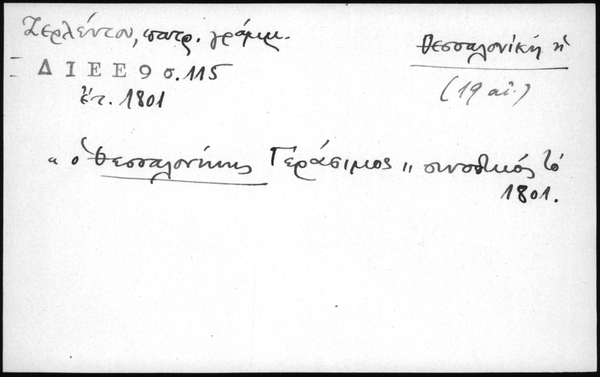 Ζερλέντου, πατρ. γράμμ.
Θεσσαλονίκη ἡ
ΔΙΕΕ 9 σ. 115
(19 αἰ.)
ἔτ. 1801
"ὁ Θεσσαλονίκης Γεράσιμος" συνοδικός τό
1801.